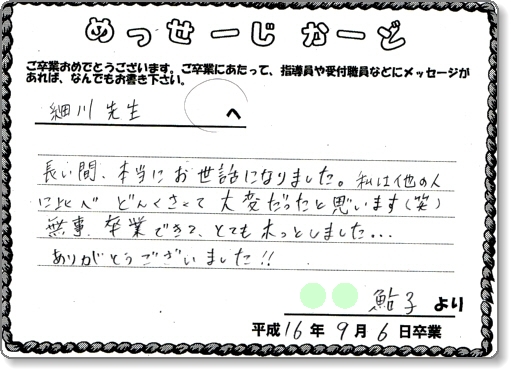 めっせーじかーど
ご卒業おめでとうございます。ご卒業にあたって、指導員や受付職員などにメッセージが
あれば、なんでもお書き下さい。
細川先生 へ
長い間、本当にお世話になりました。私は他の人
に比べどんくさくて大変だったと思います(笑)
無事、卒業できて、とてもホッとしました...
ありがとうございました!!
鮎子 より
平成16年9月6日卒業